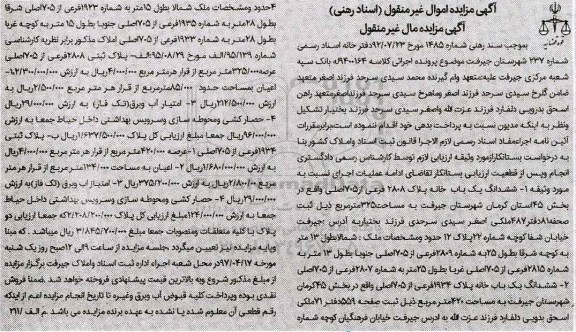 آگهی مزایده اموال غیر منقول (اسناد رهنی)
آگهی مزایده مال غیر منقول
بموجب سند رهنی شماره ۱۴۸۵ مورخ ۹۲/۰۷/۲۳ دفتر خانه اسناد رسمی
شماره ۲۳۷ شهرستان جیرفت موضوع پرونده اجرائی کلاسه ۹۴۰۰۱۶۴ بانک سپه
شعبه مرکزی جیرفت علیه متعهد وام گیرنده محمد سیدی سرحد فرزند اصغر متعهد
ضامن گلرخ سیدی سرحد فرزند اصغر وماهرخ سیدی سرحد فرزند اصغر متعهد راهن
اسحق بدرویی دلفارد فرزند عزت اله واصغر سیدی سرحد فرزند بختیار تشکیل
ونظر به اینکه مدیون نسبت به پرداخت بدهی خود اقدام ننموده است برابر مقررات
آئین نامه اجراء مفاد اسناد رسمی لازم الاجرا قانون ثبت اسناد واملاک کشور بنا
به درخواست بستانکار از مورد وثیقه ارزیابی لازم توسط کارشناس رسمی دادگستری
انجام وپس از قطعیت ارزیابی بستانکار تقاضای ادامه عملیات اجرای نسبت به
مورد وثیقه ۱- ششدانگ یک باب خانه پلاک ۲۸۰۸ فرعی از ۷۰۵ اصلی واقع در
بخش ۴۵ استان کرمان شهرستان جیرفت به مساحت ۳۲۵ مترمربع ذیل ثبت
صفحه ۸۱ دفتر ۴۸۷ ملکی اصغر سیدی سرحدی فرزند بختیار به آدرس جیرفت
خیابان شفا کوچه شماره ۲۲ پلاک ۱۲ حدود ومشخصات ملک : شمالا بطول ۱۳ متر
به کوچه شرقا بطول ۲۵ به شماره ۲۸۰۹ فرعی از ۷۰۵ اصلی جنوبا بطول ۱۳ متر به
شماره ۲۸۱۵ فرعی از ۷۰۵ اصلی غربا بطول ۲۵ متر به شماره ۲۸۰۷ فرعی از ۷۰۵ اصلی
۲- ششدانگ یک باب خانه پلاک ۱۹۳۴ فرعی از ۷۰۵ اصلی واقع در بخش ۴۵ کرمان
شهرستان جیرفت به مساحت ۴۲۰ متر مربع ذیل ثبت صفحه ۵۵۹ دفتر ۷۱ ملکی
اسحق بدویی دلفارد فرزند عزت اله به آدرس جیرفت خیابان فرهنگیان کوچه شماره
۴ حدود ومشخصات ملک شمالا بطول ۱۵ متر به شماره ۱۹۲۳ فرعی از ۷۰۵ اصلی شرقا
بطول ۲۸ متر به شماره ۱۹۳۵ فرعی از ۷۰۵ اصلی جنوبا بطول ۱۵ متر به کوچه غربا
بطول ۲۸ متر به شماره ۱۹۳۳ فرعی از ۷۰۵ اصلی املاک مذکور برابر نظریه کارشناسی
شماره ۹۵/۱۳۹ الف مورخ ۹۵/۰۸/۲۹- الف- پلاک ثبتی ۲۸۰۸ فرعی از ۷۰۵ اصلی
عرصه ۳۲۵/۰۰۰ متر مربع از قرار هر متر مربع ۴/۰۰۰/۰۰۰ ریال به ارزش ۱/۳۰۰/۰۰۰/۰۰۰-۲
اعیان بمساحت حدود ۸۵/۰۰۰ متر مربع از قرار هر متر مربع ۲/۵۰۰/۰۰۰ ریال به
ارزش ۲۱۲/۵۰۰/۰۰۰ ریال ۳- امتیاز آب وبرق (تک فاز) به ارزش ۲۹/۰۰۰/۰۰۰ ریال
۴- حصار کشی ومحوطه سازی وسرویس بهداشتی داخل حیاط جمعا به ارزش
۹۶/۰۰۰/۰۰۰ ریال جمعا مبلغ ارزیابی کل پلاک ۱/۶۳۷/۵۰۰/۰۰۰ ریال ب- پلاک ثبتی
۱۹۳۴ فرعی از ۷۰۵ اصلی ۱- عرصه ۴۲۰/۰۰۰ متر مربع از قرار هر متر مربع ۴/۰۰۰/۰۰۰ ریال
به ارزش ۱/۶۸۰/۰۰۰/۰۰۰ ریال ۲- اعیان به مساحت ۱۳۴/۰۰۰ متر مربع از قرار هر متر
مربع ۲/۸۰۰/۰۰۰ ریال به ارزش ۳۷۵/۲۰۰/۰۰۰ ریال ۳- امتیاز آب وبرق (تک فاز) به ارزش
۲۹/۰۰۰/۰۰۰ ریال ۴- حصار کشی ومحوطه سازی وسرویس بهداشتی داخل حیاط
جمعا به ارزش ۱۲۴/۰۰۰/۰۰۰ مبلغ ارزیابی کل پلاک ۲/۲۰۸/۲۰۰/۰۰۰ که جمعا ارزیابی دو
پلاک با کلیه متعلقات ومنصوبات جمعا مبلغ ۳/۸۴۵/۷۰۰/۰۰۰ ریال میباشد . که مبنا
وپایه مزایده نیز تعیین میگردد .جلسه مزایده از ساعت ۹ الی ۱۲ صبح روز یک شنبه
مورخه ۹۷/۰۴/۱۷ در محل شعبه اجراء اداره ثبت اسناد واملاک جیرفت برگزار مزایده
از مبلغ مذکور شروع وبه بالاترین قیمت پیشنهادی فروخته خواهد شد .ضمنا فروش
نقدی بوده وپرداخت کلیه قبوض آب وبرق وغیره تا تاریخ انجام مزایده اعم از اینکه
رقم قطعی آن معلوم شده یا نشده به عهده برنده مزایده می باشد .م الف/۲۹۱